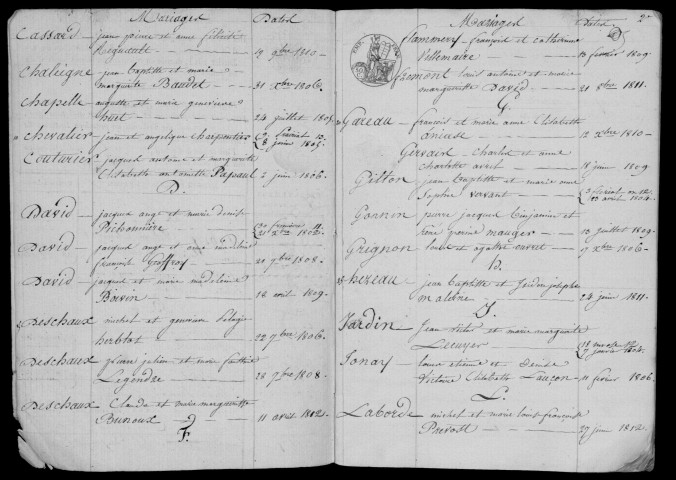 Mariages Dates
Cassard jean pierre et anne félicité
19 9bre 1810.
Chaleigne jean baptiste et marie
marguerite Baudet 31 xbre 1806.
Chapelle auguste et marie genevieve
huet 24 juillet 1809.
Chevalier jean et angelique Charpentier 19 Prairial 13.
8 juin 1805.
Couturier jacques antoine et marguerite
Elisabeth antoinette Pepaul 2 juin 1806.
D.
David jacques ange et marie denise
30 frimaire 11
21 xbre 1802.
David jacques ange et anne madeleine
françoise Goffroy 21 9bre 1808.
David jacques et marie madeleine
Boivin 18 avril 1809.
Deschaux michel et genevieve Pelagie
herbtot 22 9bre 1806.
Deschaux pierre julien et marie
Legendre 28 9bre 1808.
Deschaux Claude et marie marguerite
Buisoux 11 avril 1812.
F.
Mariages Dates
flammery françois et catherine
Villemaire 13 fevrier 1809.
fremont louis antoine et marie
marguerite David 21 8bre 1811.
G.
Gareau françois et marie anne Elisabeth
12 xbre 1810.
Gervais Charles et anne
charlotte avert 18 juin 1809.
Gilton jean baptiste et marie anne
Sophie vervant floréal an 12
avril 1804.
Gonnin pierre jacques Benjamin et
Rose yvonne mauger 10 juillet 1809.
Gregnon louis et agathe 9 xbre 1806.
h.
hézeau jean baptiste et
24 juin 1811.
J.
Jardin jean victor et marie marguerite
Lecuyer 18 nivose 12
9 janvier 1804.
Jonay louis etienne et denise
Victoire Elisabeth Lauçon 11 fevrier 1806.
L.
Laborde michel et marie louise françoise
Prevost 27 juin 1812.